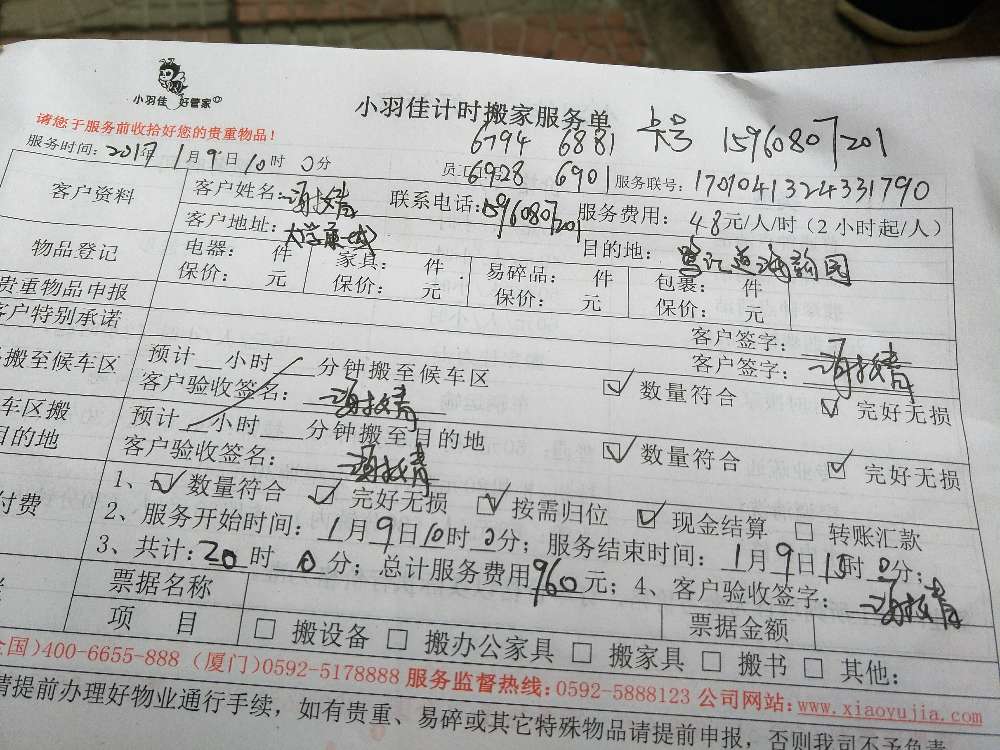 小羽佳 好管家
小羽佳计时搬家服务单
6794 6881 卡号 15960807201
请您于服务前收拾好您的贵重物品！
服务时间：2017年1月9日10时0分 员工 6928 6901 服务联号：1701041324331790
客户资料 客户姓名： 联系电话：15960807201 服务费用：48元/人/时（2小时起/人）
客户地址：大学康城 目的地：
物品登记 电器： 件 家具： 件 易碎品： 件 包裹： 件
保价： 元 保价： 元 保价： 元 保价： 元
贵重物品申报 客户签字：
客户特别承诺 客户签字：
搬至候车区 预计 小时 分钟搬至候车区
客户验收签名： ☑ 数量符合 ☑ 完好无损
车区搬 预计 小时 分钟搬至目的地
目的地 客户验收签名： ☑ 数量符合 ☑ 完好无损
1、☑ 数量符合 ☑ 完好无损 ☑ 按需归位 ☑ 现金结算 □ 转账汇款
付费 2、服务开始时间：1月9日10时0分；服务结束时间：1月9日15时0分；
3、共计：20时0分；总计服务费用960元；4、客户验收签字：
票据名称 票据金额
项 目 □ 搬设备 □ 搬办公家具 □ 搬家具 □ 搬书 □ 其他：
全国)400-6655-888 (厦门)0592-5178888 服务监督热线:0592-5888123 公司网站:www.xiaoyujia.com
请提前办理好物业通行手续，如有贵重、易碎或其它特殊物品请提前申报，否则我司不予负责